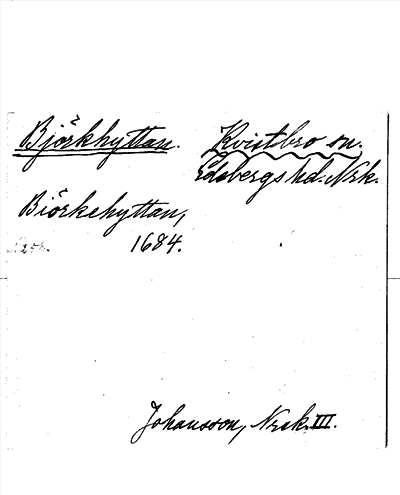 Björkhyttan. Kvistbro sn.
Edsbergs hd. Nrk.
Biörkehyttan,
1684.
Johansson, Nrk. III.